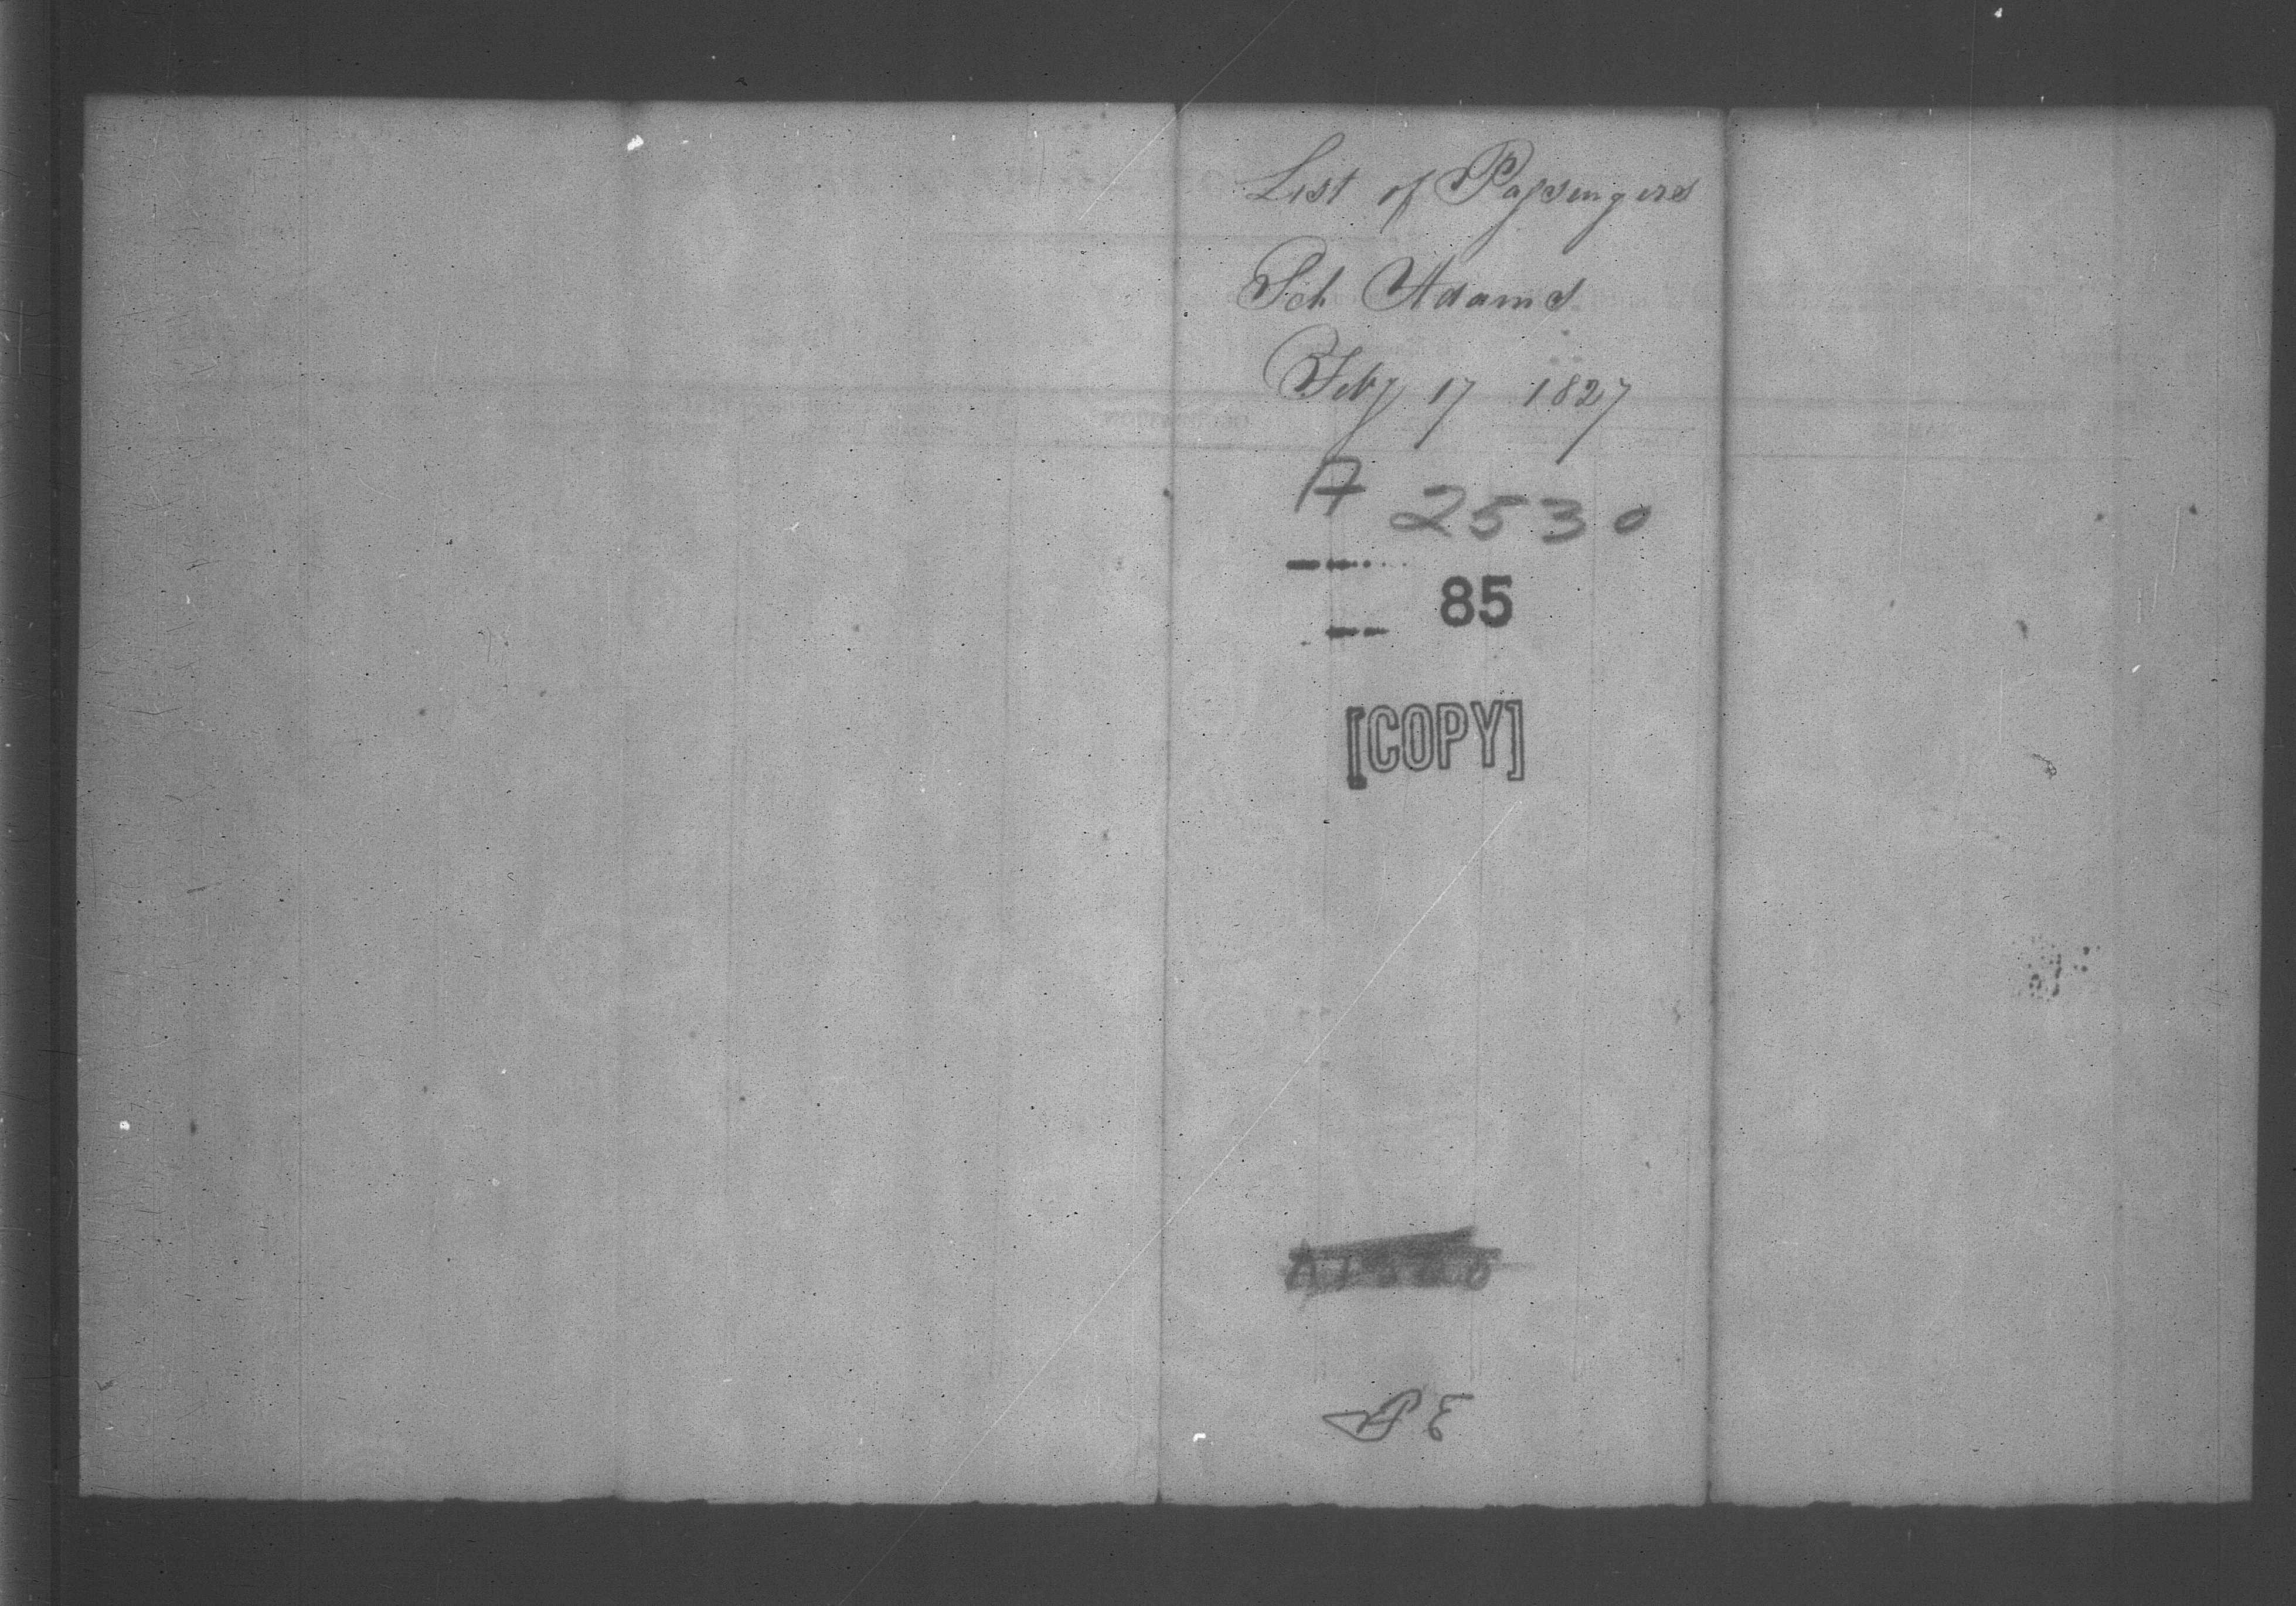 List of Passengers
Sch Adams
Feby 17 1827
A 2530
85
[COPY]